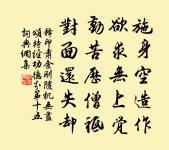 施身空造作
欲求無上覺
勤苦歷僧祇
對面還失却
釋印肅金剛隨機無盡
頌持經功德分第十五
詞典網集